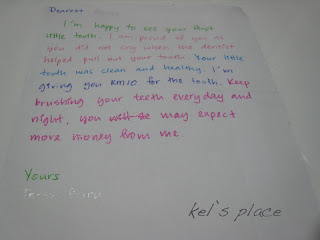 Dearest
I'm happy to see your first
little tooth. I am proud of you as
you did not cry when the dentist
helped pull out your tooth. Your little
tooth was clean and healthy. I'm
giving you RM10 for the tooth. Keep
brushing your teeth everyday and
night, you will be may expect
more money from me.
Yours
Tooth Fairy
kel's place